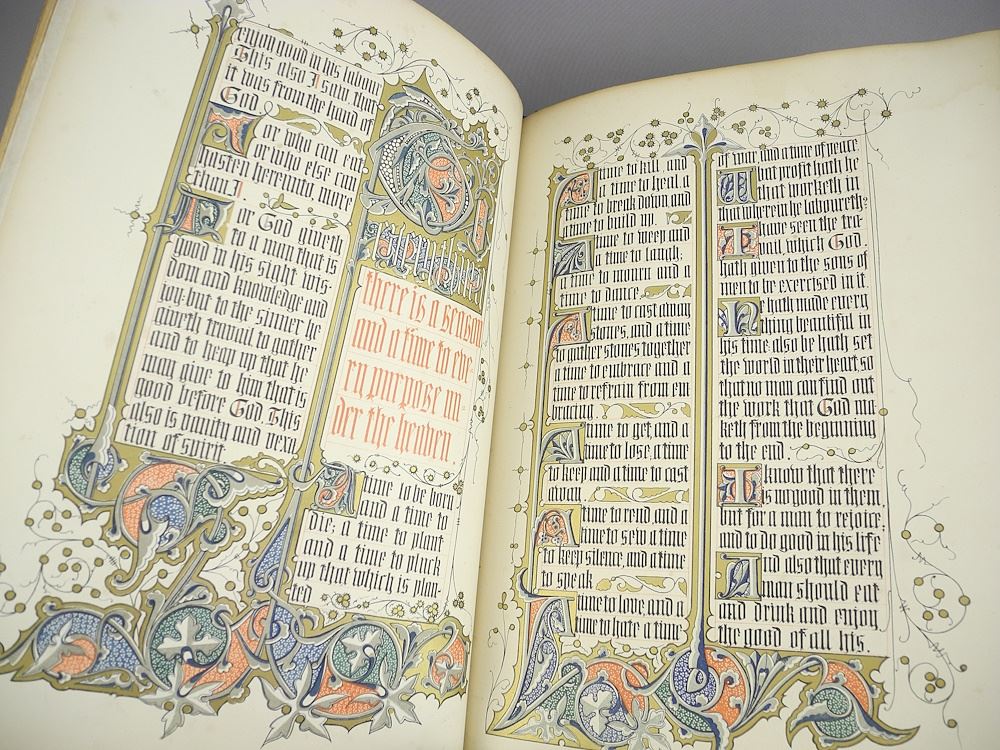 enjoy good in his labour
This also I saw that
it was from the hand of
God.
For who can eat
or who else can
hasten hereunto more
than I.
For God giveth
to a man that is
good in his sight wis-
dom and knowledge and
joy: but to the sinner he
giveth travail to gather
and to heap up that he
may give to him that is
good before God This
also is vanity and vexa
tion of spirit.
there is a season
and a time to eve-
ry purpose un-
der the heaven.
A time to be born
and a time to
die; a time to plant
and a time to pluck
up that which is plan-
ted
A time to kill, and
a time to heal, a
time to break down and
a time to build up.
A time to weep, and
a time to laugh;
a time to mourn and a
time to dance
A time to cast away
stones, and a time
to gather stones together
a time to embrace and a
time to refrain from em
bracing.
A time to get, and a
time to lose, a time
to keep and a time to cast
away.
A time to rend, and a
time to sew a time
to keep silence, and a time
to speak
A time to love, and a
time to hate a time
of war and a time of peace
What profit hath he
that worketh in
that wherein he laboureth?
I have seen the tra-
vail, which God.
hath given to the sons of
men to be exercised in it.
He hath made every
thing beautiful in
his time: also he hath set
the world in their heart, so
that no man can find out
the work that God ma
keth from the beginning
to the end.
I know that there
is no good in them,
but for a man to rejoice;
and to do good in his life
And also that every
man should eat
and drink and enjoy
the good of all his.